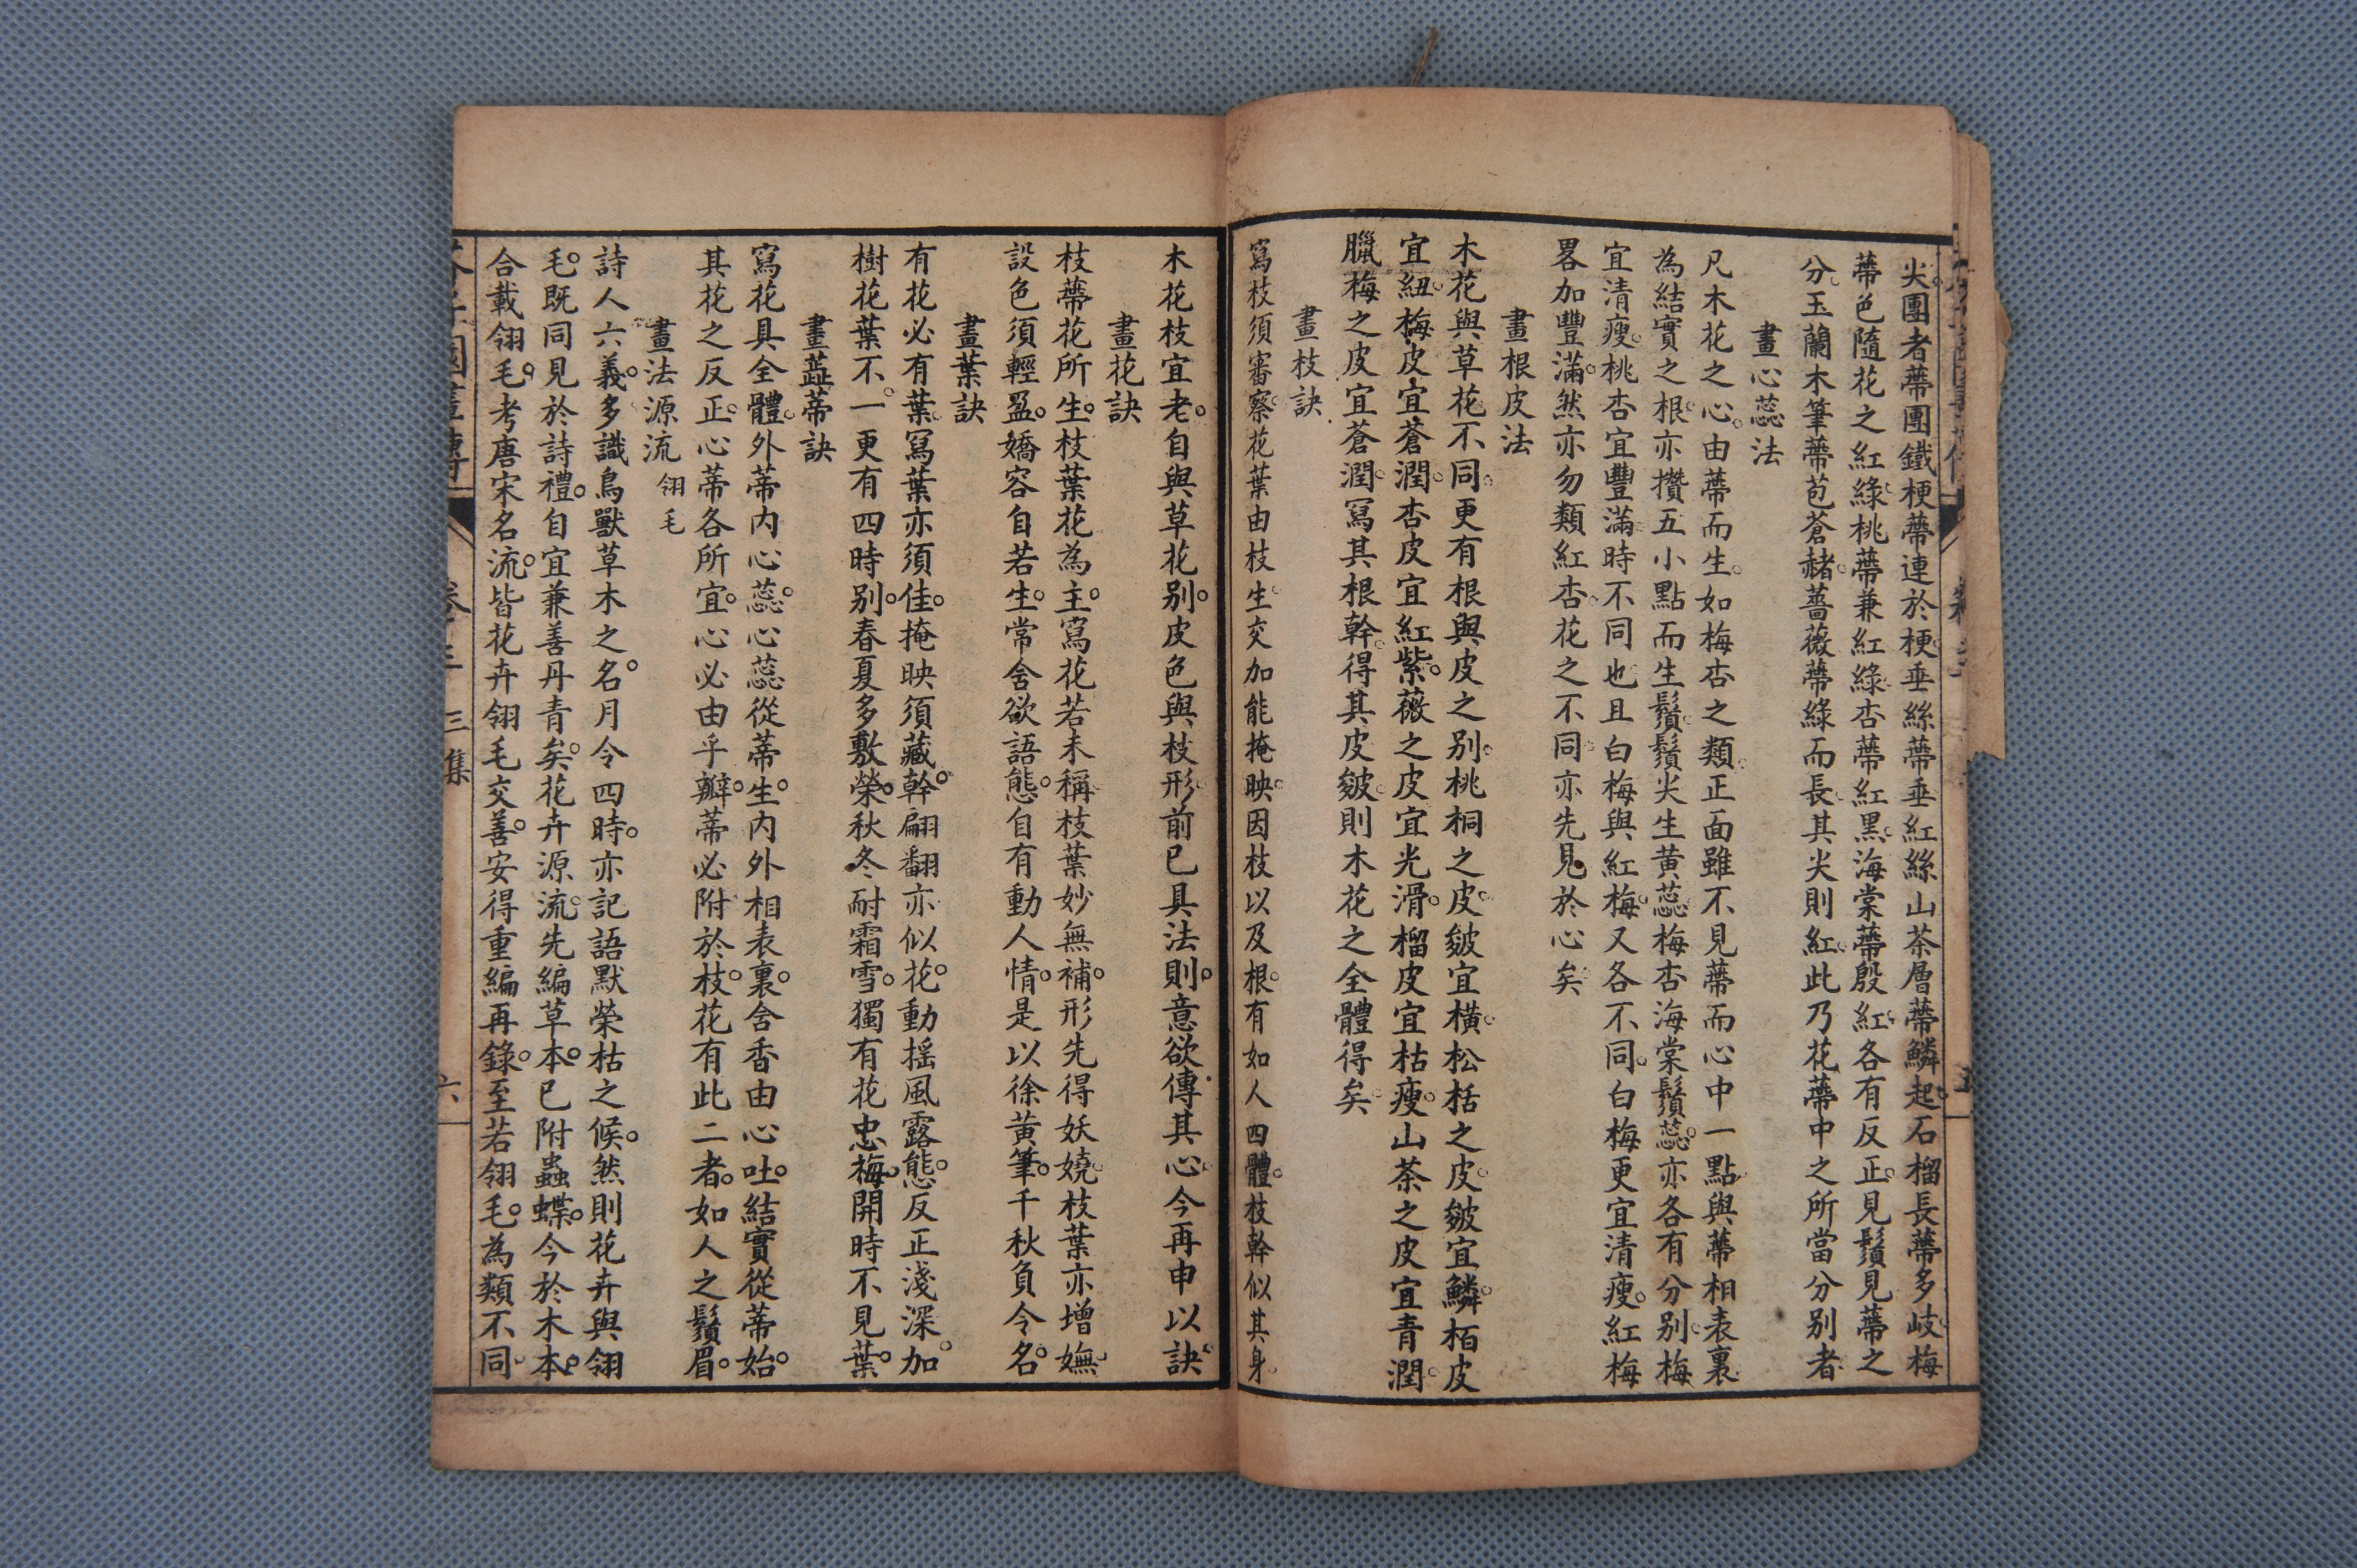 尖。團者蒂團。鐵梗蒂連於梗。垂絲蒂垂紅絲。山茶層蒂鱗起。石榴長蒂多岐。梅
蒂色隨花之紅綠。桃蒂兼紅綠。杏蒂紅黑。海棠蒂殷紅。各有反正。見鬚見蒂之
分。玉蘭木筆蒂苞蒼赭。薔薇蒂綠而長。其尖則紅。此乃花蒂中之所當分別者
畫心蕊法
凡木花之心。由蒂而生。如梅杏之類。正面雖不見蒂。而心中一點。與蒂相表裏
為結實之根。亦攢五小點而生鬚。鬚尖生黃蕊。梅杏海棠鬚蕊。亦各有分別。梅
宜清瘦。桃杏宜豐滿。時不同也。且白梅與紅梅。又各不同。白梅更宜清瘦。紅梅
畧加豐滿。然亦勿類紅杏。花之不同。亦先見於心矣
畫根皮法
木花與草花不同。更有根與皮之別。桃桐之皮。皴宜橫。松栝之皮。皴宜鱗。栢皮
宜紐。梅皮宜蒼潤。杏皮宜紅。紫薇之皮宜光滑。榴皮宜枯瘦。山茶之皮宜青潤。
臘梅之皮宜蒼潤。寫其根幹。得其皮皴。則木花之全體得矣
畫枝訣
寫枝須審察。花葉由枝生。交加能掩映。因枝以及根。有如人四體。枝幹似其身。
木花枝宜老。自與草花別。皮色與枝形。前已具法則。意欲傳其心。今再申以訣。
畫花訣
枝蒂花所生。枝葉花為主。寫花若未稱。枝葉妙無補。形先得妖嬈。枝葉亦增嫵。
設色須輕盈。嬌容自若生。常含欲語態。自有動人情。是以徐黃筆。千秋負令名。
畫葉訣
有花必有葉。寫葉亦須佳。掩映須藏幹。翩翻亦似花。動搖風露態。反正淺深加。
樹花葉不一。更有四時別。春夏多敷榮。秋冬耐霜雪。獨有花忠梅。開時不見葉。
畫蕋蒂訣
寫花具全體。外蒂內心蕊。心蕊從蒂生。內外相表裏。含香由心吐。結實從蒂始。
其花之反正。心蒂各所宜。心必由乎瓣。蒂必附於枝。花有此二者。如人之鬚眉。
畫法源流 翎毛
詩人六義。多識鳥獸草木之名。月令四時。亦記語默榮枯之候。然則花卉與翎
毛。既同見於詩禮。自宜兼善丹青矣。花卉源流。先編草本。已附蟲蝶。今於木本。
合載翎毛。考唐宋名流。皆花卉翎毛交善。安得重編再錄。至若翎毛。為類不同
卷三 三集 六